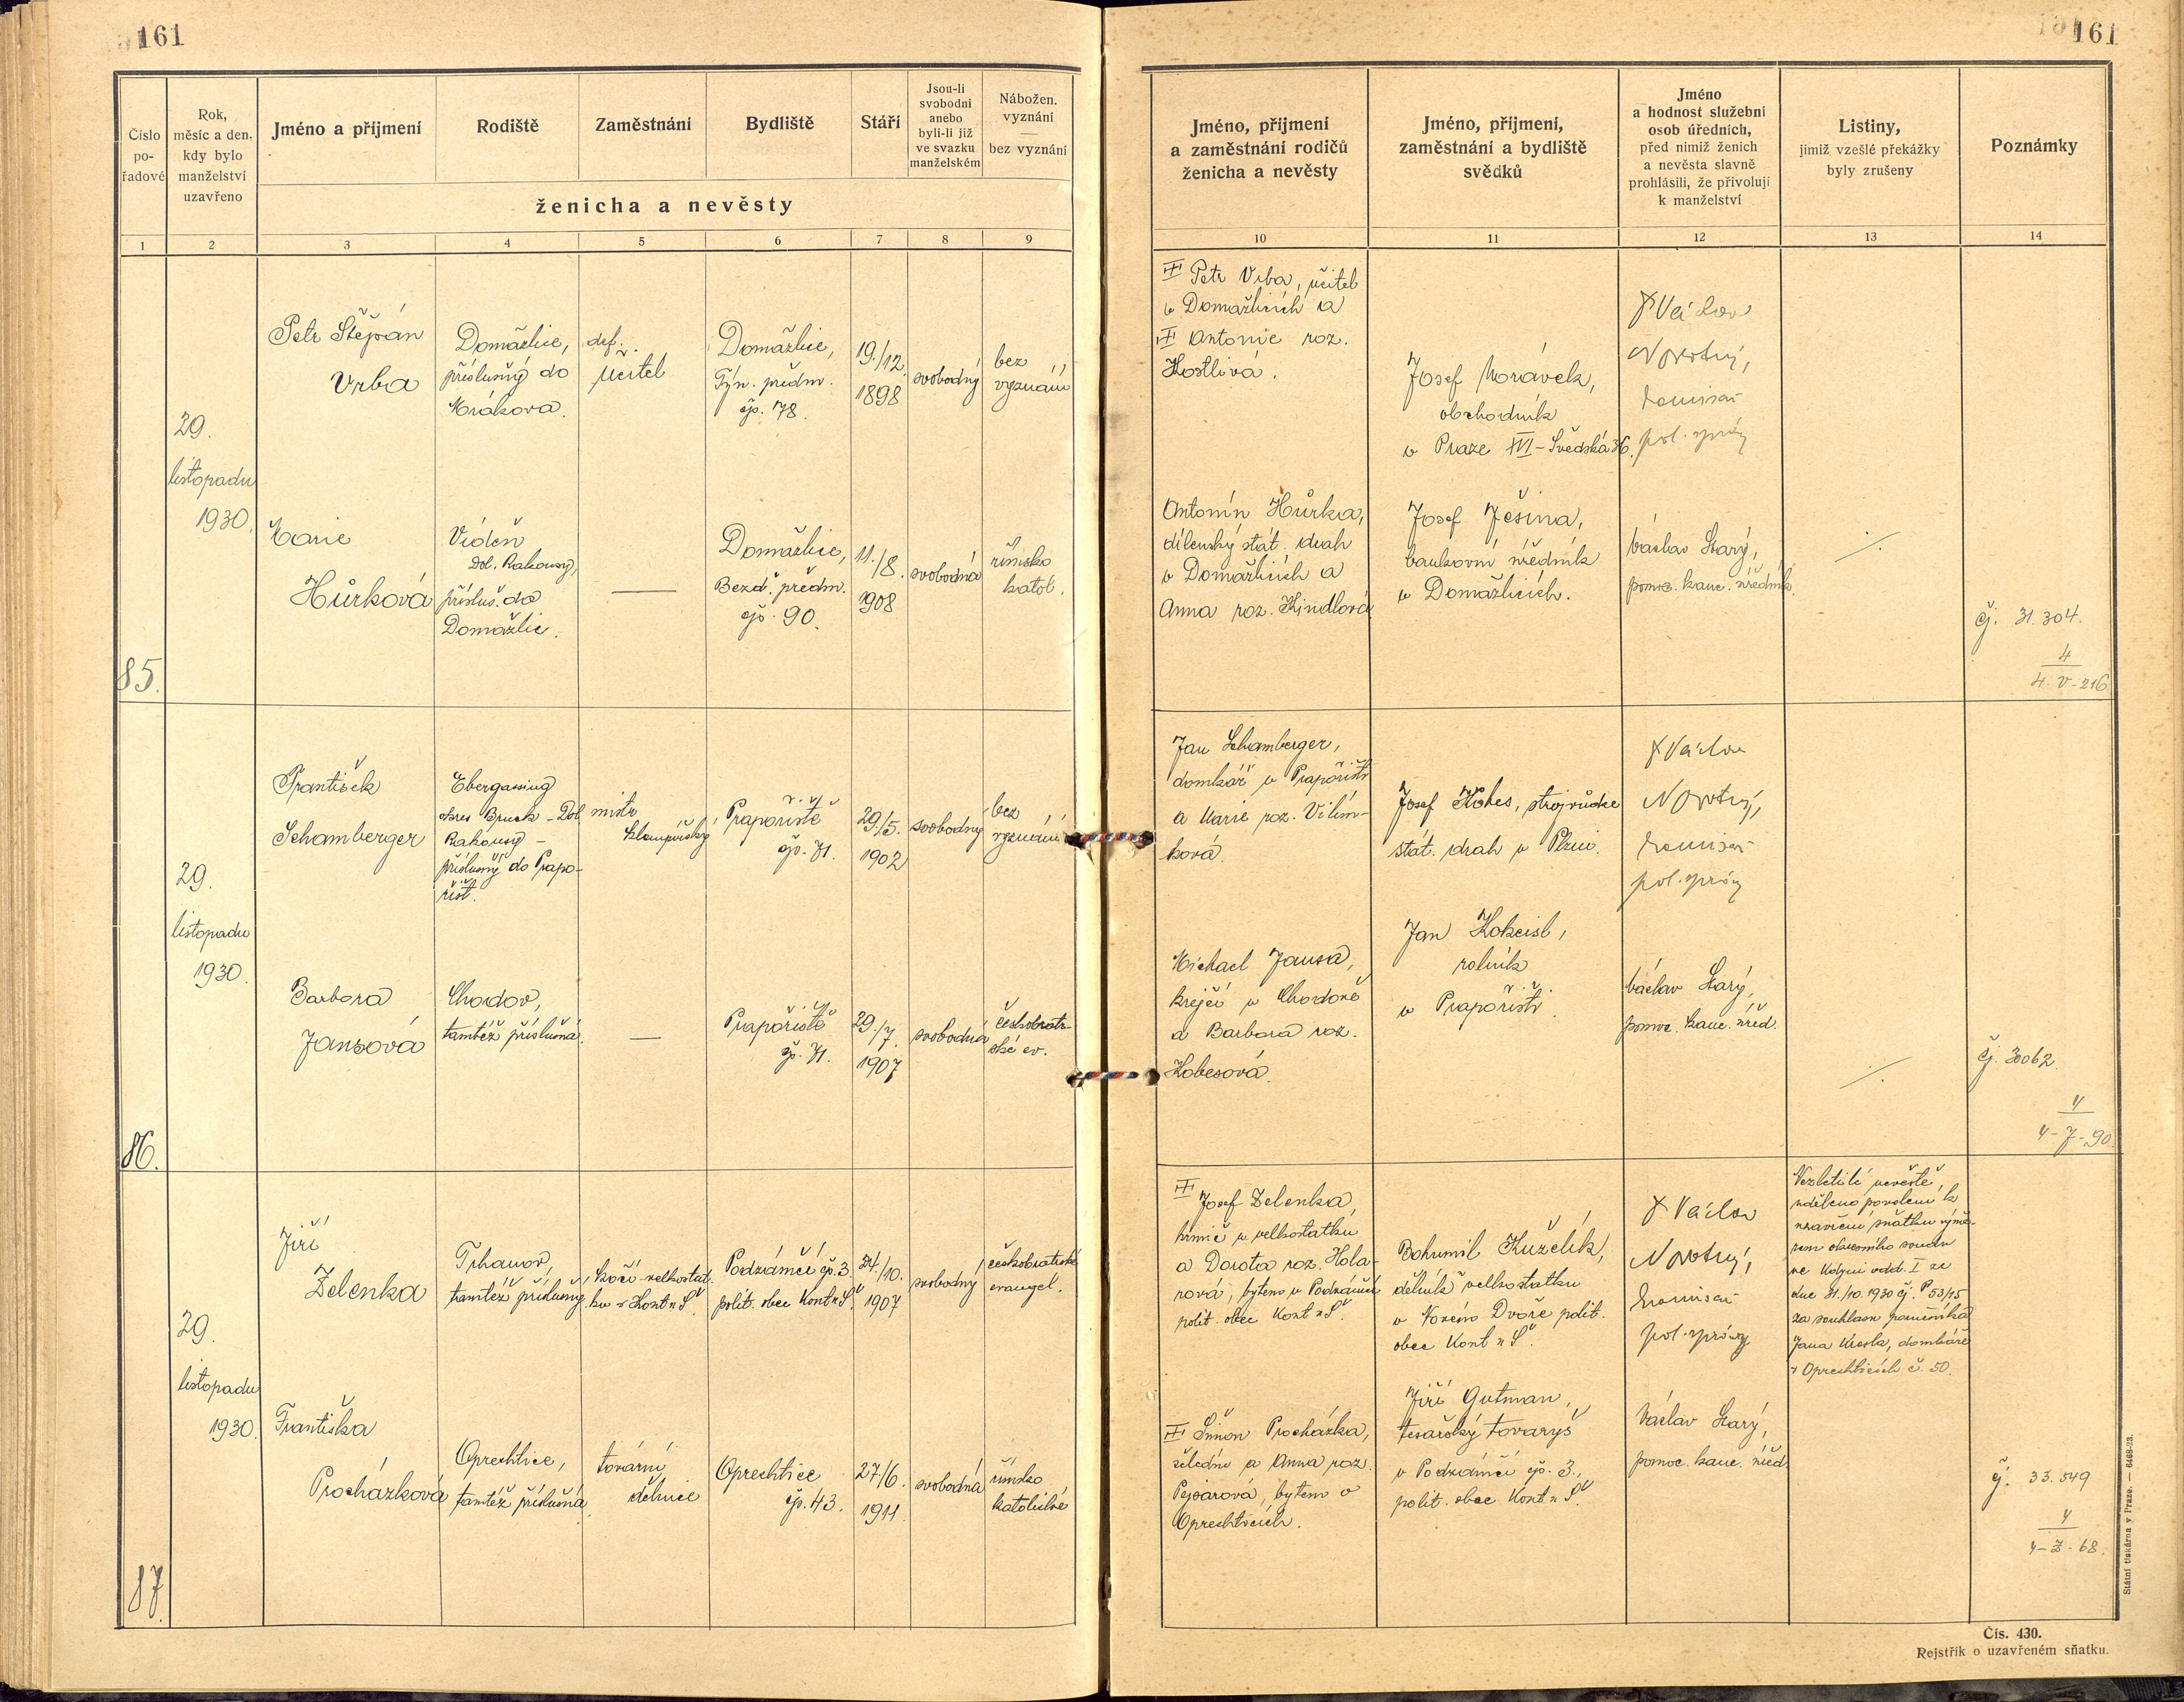 161
161
Číslo
po-
řadové
Rok,
měsíc a den,
kdy bylo
manželství
uzavřeno
Jméno a příjmení
Rodiště
Zaměstnání
Bydliště
Stáří
Jsou-li
svobodni
anebo
byli-li již
ve svazku
manželském
Nábožen.
vyznání
—
bez vyznání
ženicha a nevěsty
1
2
3
4
5
6
7
8
9
Jméno, příjmení
a zaměstnání rodičů
ženicha a nevěsty
Jméno, příjmení,
zaměstnání a bydliště
svědků
Jméno
a hodnost služební
osob úředních,
před nimiž ženich
a nevěsta slavně
prohlásili, že přivolují
k manželství
Listiny,
jimiž vzešlé překážky
byly zrušeny
Poznámky
10
11
12
13
14
85.
29.
listopadu
1930.
Petr Štěpán
Vrba
Domažlice,
příslušný do
Mrákova.
def.
učitel
Domažlice,
Týn. předm.
čp. 78.
19./12.
1898
svobodný
bez
vyznání
Petr Vrba, učitel
v Domažlicích a
Antonie roz.
Kostlivá.
Josef Morávek,
obchodník
v Praze XVI – Švédská 36.
Václav
Novotný,
komisař
pol. správy
Marie
Hůrková
Vídeň
Dol. Rakousy,
přísluš. do
Domažlic.
—
Domažlice,
Bezd. předm.
čp. 90.
11./8.
1908
svobodná
římsko
katol.
Antonín Hůrka,
dílenský stát. drah
v Domažlicích a
Anna roz. Kindlová
Josef Ješina,
bankovní úředník
v Domažlicích.
Václav Starý,
pomoc. kanc. úředník.
./.
čj. 31.304.
4
4. V - 216
86.
29.
listopadu
1930.
František
Schamberger
Ebergassing
okres Bruck – Dol.
Rakousy –
příslušný do Prapo-
řišť.
mistr
klempířský
Prapořiště
čp. 71.
29./5.
1902
svobodný
bez
vyznání
Jan Schamberger,
domkář v Prapořišti
a Marie roz. Vilím-
ková.
Josef Kobes, strojvůdce
stát. drah v Plzni.
Václav
Novotný,
komisař
pol. správy
Barbora
Jansová
Chodov,
tamtéž příslušná.
—
Prapořiště
čp. 71.
29./7.
1907
svobodná
českobratr-
ské ev.
Michael Jansa,
krejčí v Chodově
a Barbora roz.
Kobesová.
Jan Kokeisl,
rolník
v Prapořišti.
Václav Starý,
pomoc. kanc. úřed.
./.
čj. 30062.
4
4 - 7 - 90.
87.
29.
listopadu
1930.
Jiří
Zelenka
Trhanov,
tamtéž příslušný.
kočí velkostat-
ku v Kout n Š.
Podzámčí čp. 3.
polit. obec Kout n Š.
24./10.
1907
svobodný
českobratrské
evangel.
Josef Zelenka,
krmič u velkostatku
a Dorota roz. Hola-
rová, bytem v Podzámčí
polit. obec Kout n Š.
Bohumil Kuželík,
dělník velkostatku
v Novém Dvoře polit.
obec Kout n Š.
Václav
Novotný,
komisař
pol. správy
Nezletilé nevěstě,
uděleno povolení k
uzavření sňatku výmě-
rem okresního soudu
ve Kdyni odd. I ze
dne 31./10. 1930 čj. P 53/15
za souhlasu poručníka
Jana Kresla, domkáře
v Oprechticích č. 50.
Františka
Procházková
Oprechtice,
tamtéž příslušná.
tovární
dělnice
Oprechtice
čp. 43.
27./6.
1911.
svobodná
římsko
katolické
Šimon Procházka,
a Anna roz.
Pejsarová, bytem v
Oprechticích.
Jiří Gutman,
tesařský tovaryš
v Podzámčí čp. 3.,
polit. obec Kout n Š.
Václav Starý,
pomoc. kanc. úřed.
čj. 33.549
4
4 - Z - 68.
Státní tiskárna v Praze. — 6468-23.
Čís. 430.
Rejstřík o uzavřeném sňatku.